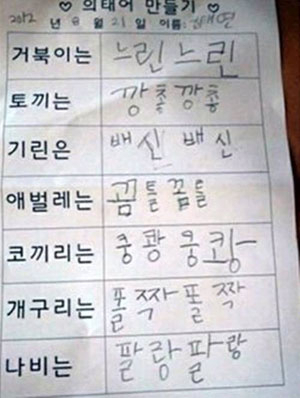 ♡ 의태어 만들기 ♡
2012 년 8 월 21 일 이름: 태연
거북이는 느린느린
토끼는 깡충깡충
기린은 배신 배신
애벌레는 꿈틀꿈틀
코끼리는 쿵쾅 쿵쾅
개구리는 폴짝 폴짝
나비는 팔랑팔랑